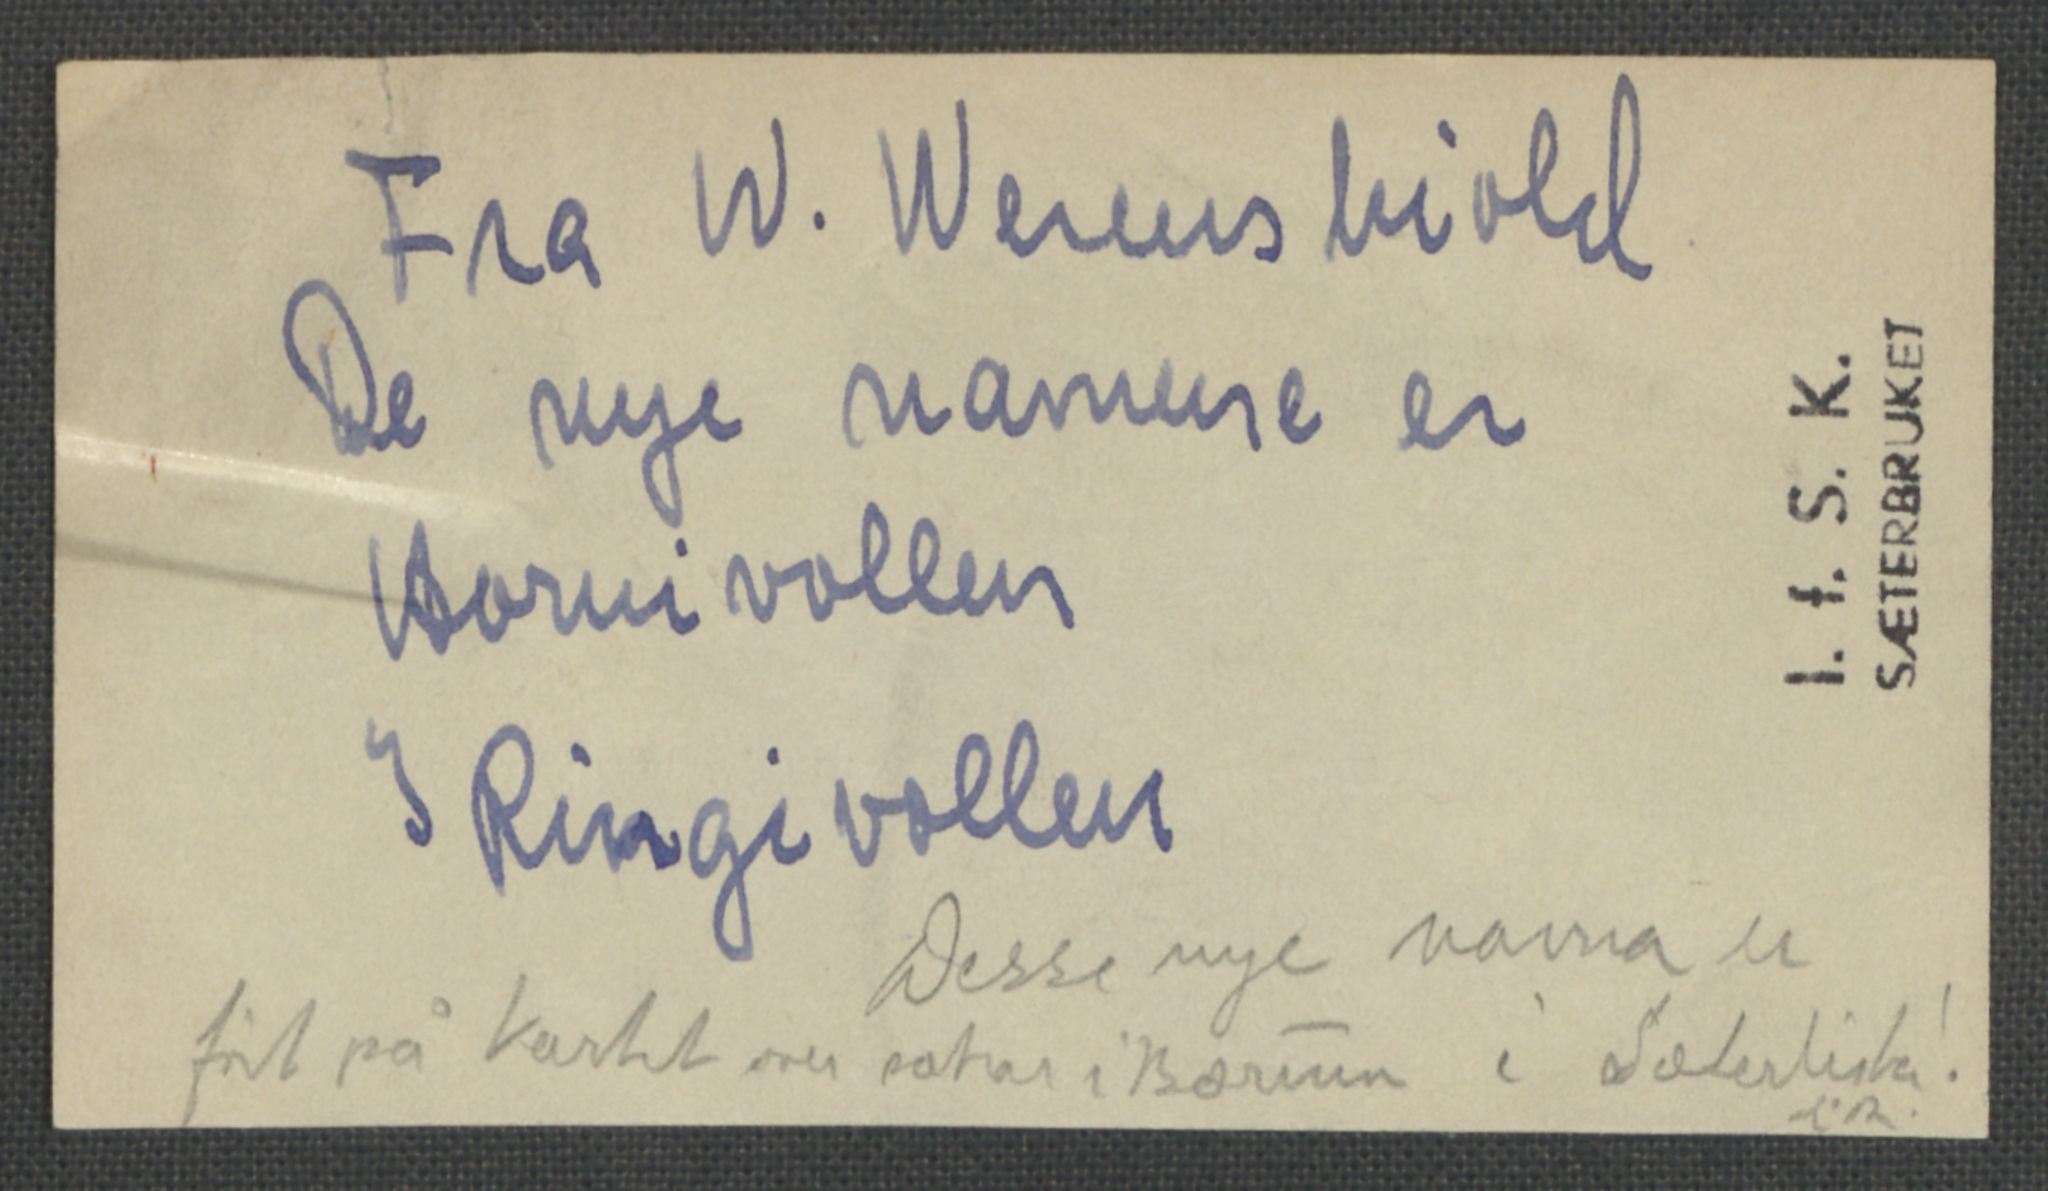 Fra W. Werenskiold
De nye namnene er
Hornivollen
Ringivollen
Desse nye navna er
ført på kartet over sætrar i Bærum i Sæterlista!
I. f. S. K.
SÆTERBRUKET